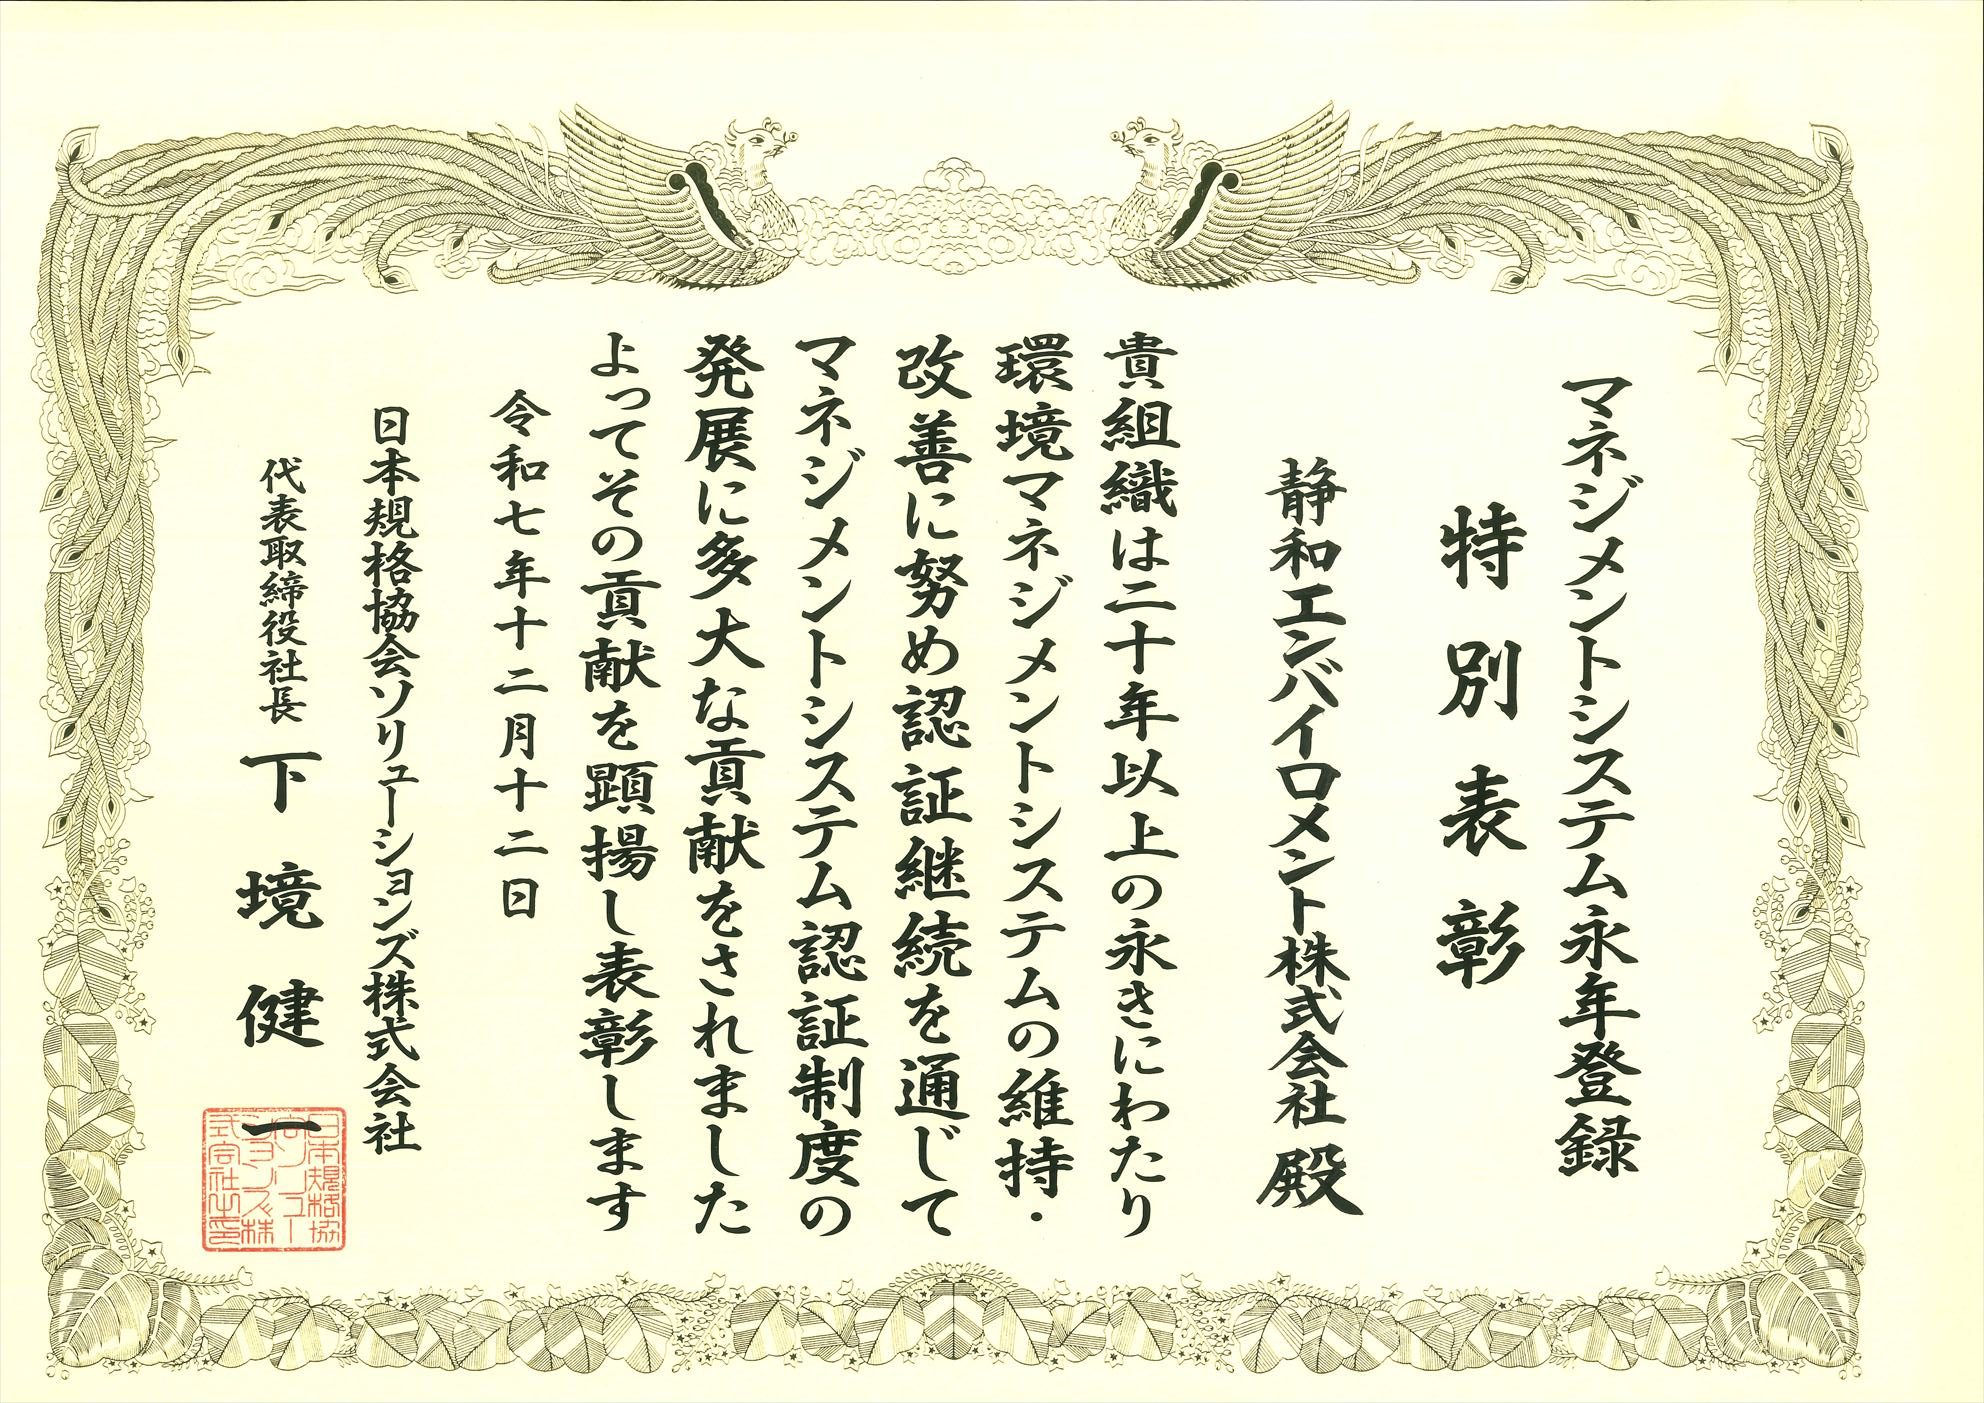 マネジメントシステム永年登録
特別表彰
静和エンバイロメント株式会社 殿
貴組織は二十年以上の永きにわたり
環境マネジメントシステムの維持・
改善に努め認証継続を通じて
マネジメントシステム認証制度の
発展に多大な貢献をされました
よってその貢献を顕揚し表彰します
令和七年十二月十二日
日本規格協会ソリューションズ株式会社
代表取締役社長 下境健一
日本規格協
会ソリュー
ションズ株
式会社之印